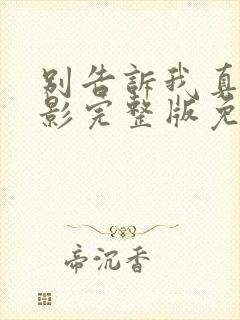 别告訴我真
影完整版免
帝沉香